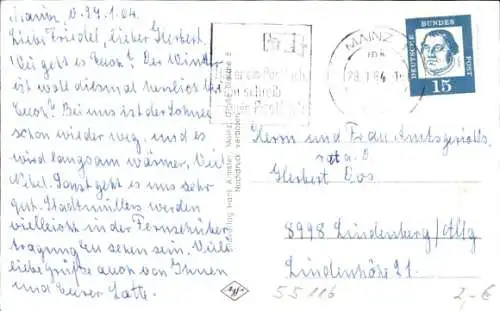 Mainz, d. 27.1.64.
Liebe Friedel, lieber Herbert.
Wie geht es Euch? Der Winter
ist wohl diesmal herrlich bei
Euch? Bei uns ist der Schnee
schon wieder weg, und es
wird langsam wärmer. Viel
Nebel. Sonst geht es uns sehr
gut. Stadtmüllers werden
vielleicht in der Fernsehüber
tragung zu sehen sein. Viele
liebe Grüße auch von Ihnen
und Eurer Lotte.
MAINZ
28.1.64
DEUTSCHE BUNDESPOST
15
Herrn und Frau Amtsgerichts
rat a. D
Herbert Dos
8998 Lindenberg/Allg
Lindenhöhe 21.
55116
2,- €